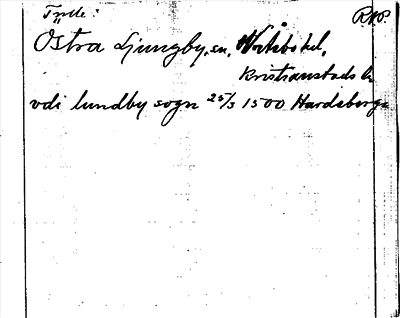 Tydde: RAP.
Östra Ljungby, sn,
Kristianstads l.
vdi lundby sogn 25/3 1500 Hardeberga